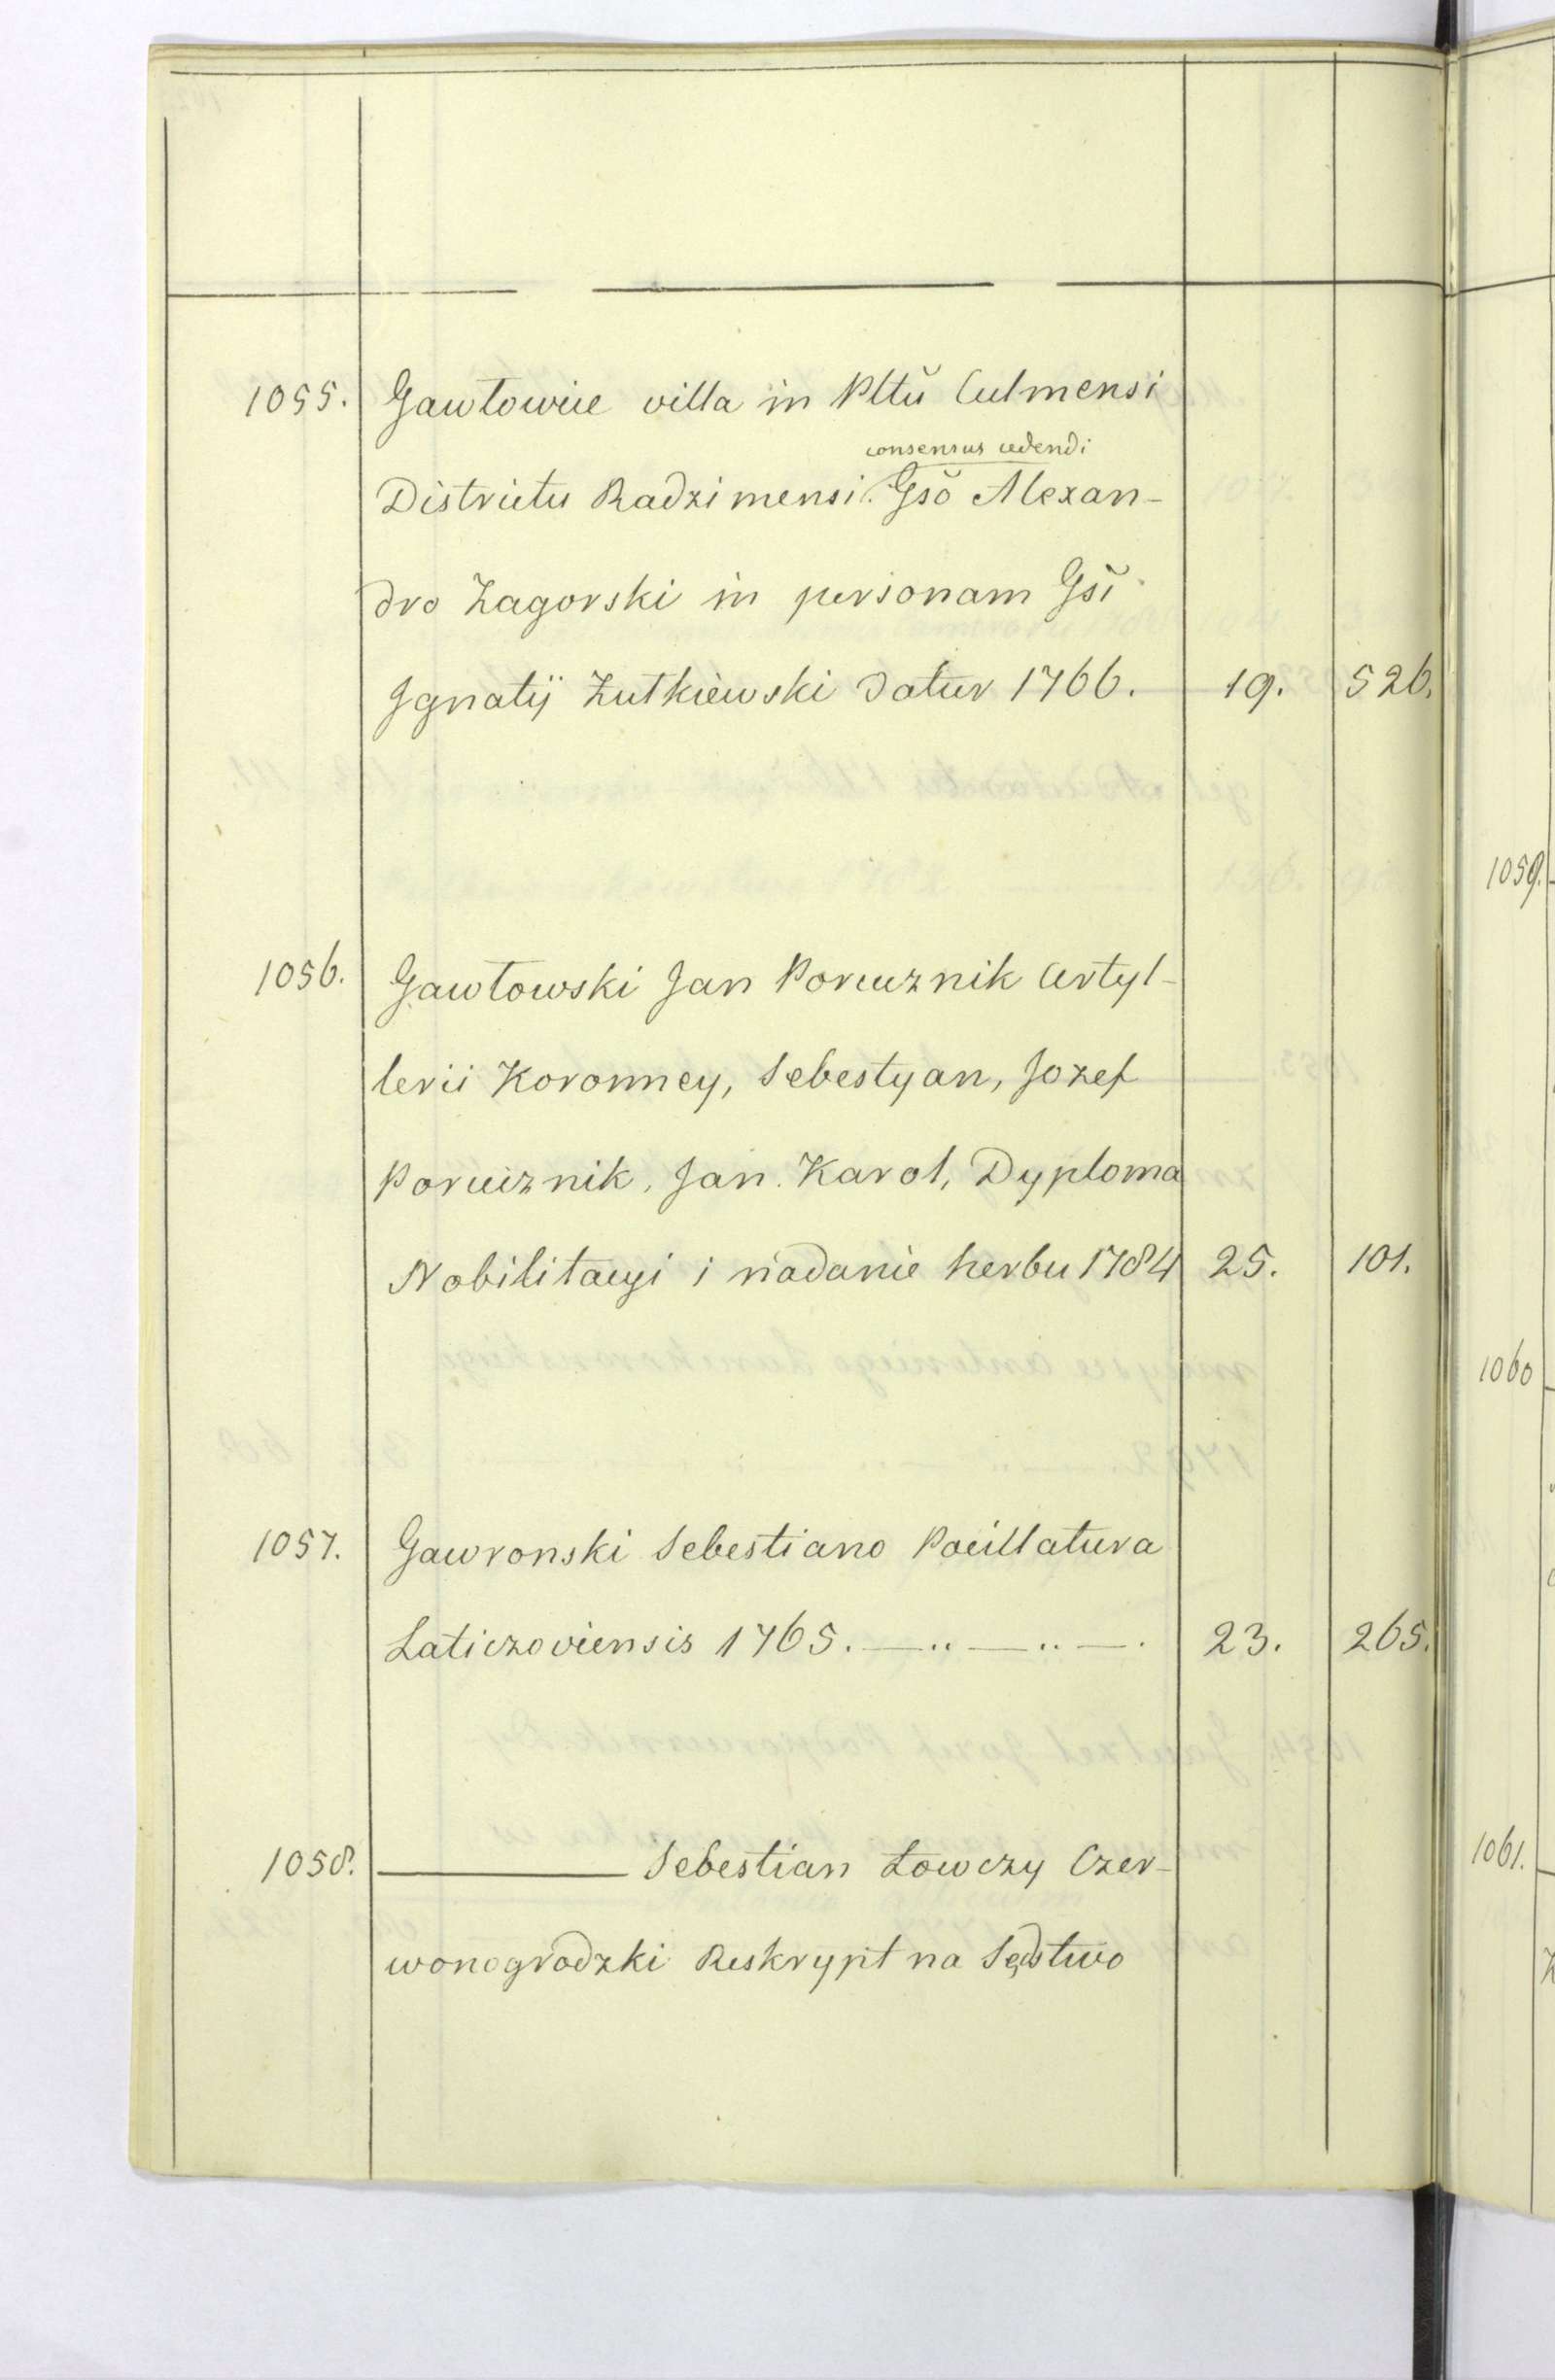 1055. Gawłowice villa in Pltŭ Culmensi
consensus cedendi
Districtu Radzimensi. Gsŏ Alexan-
dro Zagorski in personam Gsĭ
Ignatij Zutkiewski datur 1766. 19. 526.
1056. Gawłowski Jan Porucznik Artyl-
lerii Koronney, Sebestyan, Jozef
Porucznik, Jan. Karol, Dyploma
Nobilitacyi i nadanie herbu 1784 25. 101.
1057. Gawronski Sebestiano Pocillatura
Laticzoviensis 1765. —..—..—. 23. 265.
1058. ——— Sebestian Łowczy Czer-
wonogrodzki Reskrypt na Sędstwo
1059.
1060
1061.